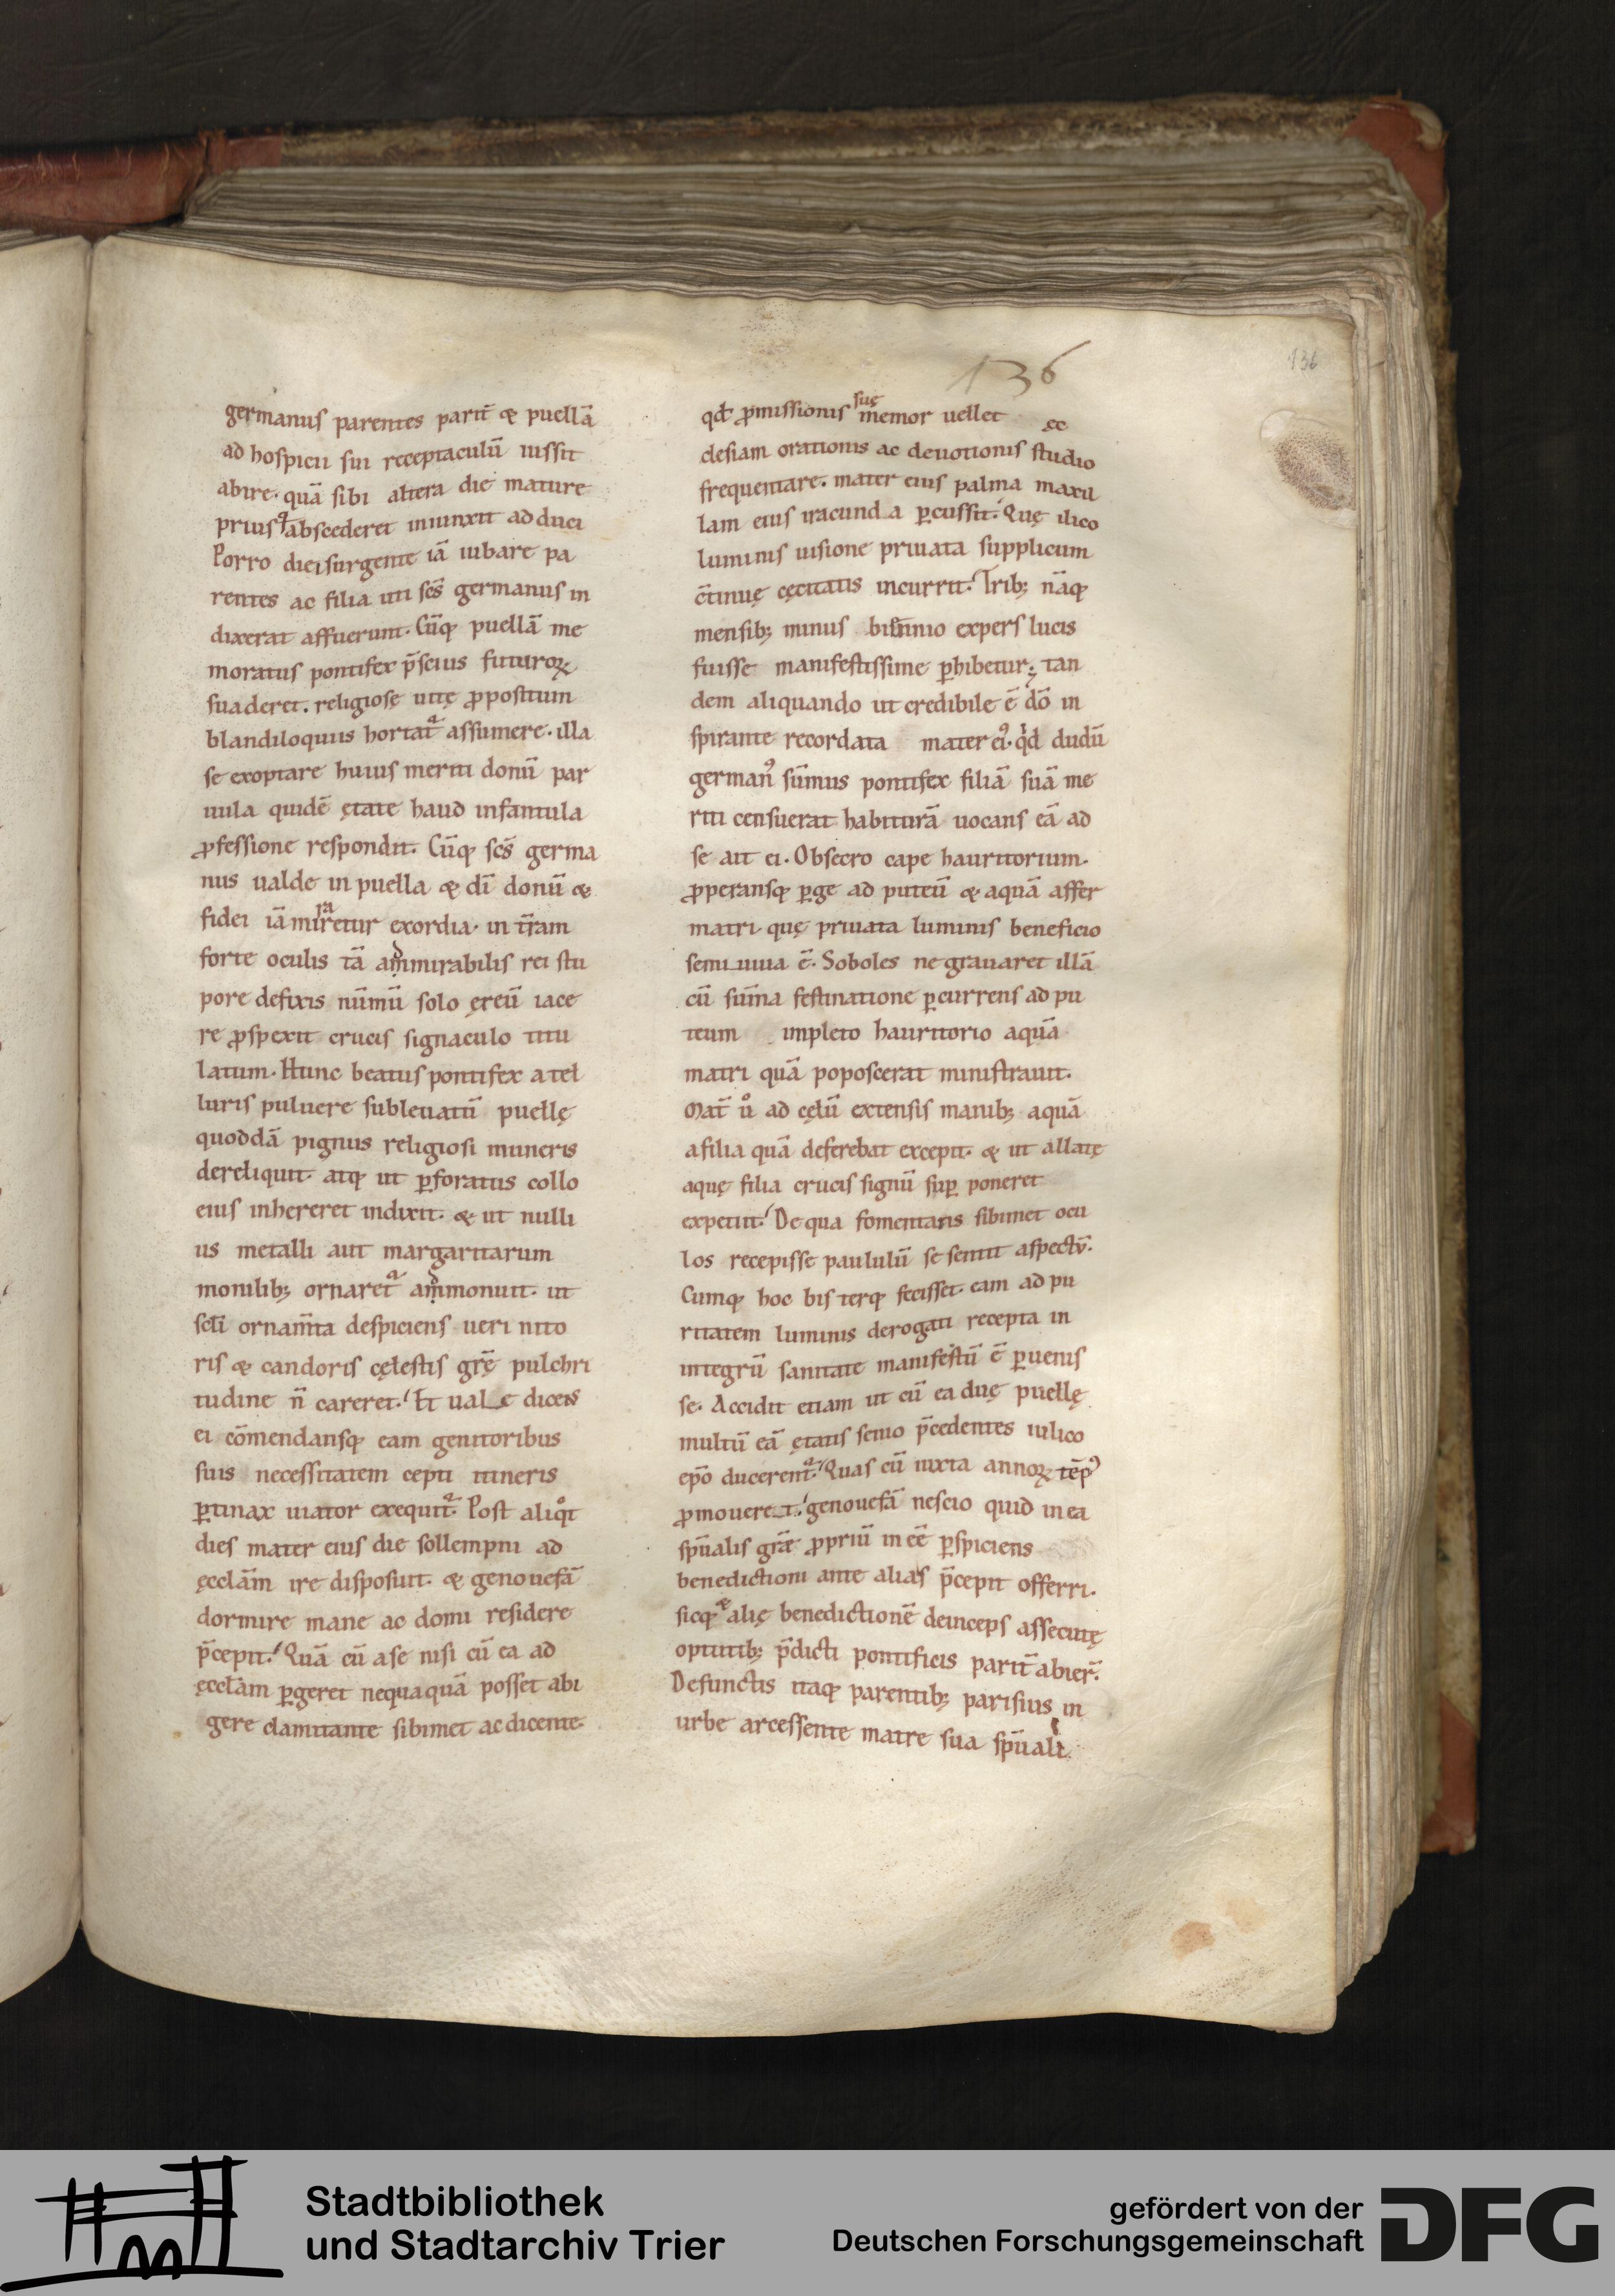 136
136
germanus parentes parit̄ & puellā
ad hospicii sui receptaculū iussit
abire. quā sibi altera die mature
prius qͣ abscederet iniunxit adduci
Porro diei surgente iā iubare pa
rentes ac filia uti sc̄s germanus in
dixerat affuerunt. Cūq; puellā me
moratus pontifex p̄scius futuroꝝ
suaderet. religiosę uitę ꝓpositum
blandiloquiis hortat᷑ assumere. illa
se exoptare huius meriti donū par
uula quidē ętate haud infantula
ꝓfessione respondit. Cūq; sc̄s germa
nus ualde in puella & dī donū &
fidei iā miraretur exordia. in tr̄am
forte oculis tā admirabilis rei stu
pore defixis nūmū solo ęreū iace
re ꝓspexit crucis signaculo titu
latum. Hunc beatus pontifex a tel
luris puluere subleuatū puellę
quoddā pignus religiosi muneris
dereliquit. atq; ut ꝑforatus collo
eius inhereret indixit. & ut nulli
us metalli aut margaritarum
monilib; ornaret᷑ admonuit. ut
scl̄i ornam̄ta despiciens ueri nito
ris & candoris cęlestis grę̄ pulchri
tudine n̄ careret. Et uale dicens
ei cōmendansq; eam genitoribus
suis necessitatem cepti itineris
ꝑtinax uiator exequit᷑. Post aliqͦt
dies mater eius die sollempni ad
ęccl̄am ire disposuit. & genouefā
dormire mane ac domi residere
p̄cepit. Quā cū a se nisi cū ea ad
ęccl̄am ꝑgeret nequaquā posset abi
gere clamitante sibimet ac dicente.
qd̄ ꝓmissionis suę memor uellet ęc
clesiam orationis ac deuotionis studio
frequentare. mater eius palma maxil
lam eius iracunda ꝑcussit. Quę ilico
luminis uisione priuata supplicium
c̄tinuę cęcitatis incurrit. Trib; nāq;
mensib; minus biennio expers lucis
fuisse manifestissime ꝑhibetur; tan
dem aliquando ut credibile ē dō in
spirante recordata mater ei᷒. qd̄ dudū
german᷒ sūmus pontifex filiā suā me
riti censuerat habiturā uocans eā ad
se ait ei. Obsecro cape hauritorium.
ꝓperansq; ꝑge ad puteū & aquā affer
matri. quę priuata luminis beneficio
semiuiua ē. Soboles ne grauaret illā
cū sūma festinatione ꝑcurrens ad pu
teum impleto hauritorio aquā
matri quā poposcerat ministrauit.
Mat̄ uͦ ad cęlū extensis manib; aquā
a filia quā deferebat excepit. & ut allatę
aquę filia crucis signū suꝑ poneret
expetiit. De qua fomentans sibimet ocu
los recepisse paululū se sentit aspectū.
Cumq; hoc bis terq; fecisset. eam ad pu
ritatem luminis derogati recepta in
integrū sanitate manifestū ē ꝑuenis
se. Accidit etiam ut cū ea duę puellę
multū eā ętatis senio p̄cedentes iulico
ep̄o ducerent᷑. Quas cū iuxta annoꝝ tēp᷒
ꝓmoueret. genouefā nescio quid in ea
sp̄ualis grāe ꝓpriū inēē ꝑspiciens
benedictioni ante alias p̄cepit offerri.
sicq; & alię benedictionē deinceps assecutę
optutib; p̄dicti pontificis parit̄ abier̄.
Defunctis itaq; parentib; parisius in
urbe arcessente matre sua sp̄uali
Stadtbibliothek
und Stadtarchiv Trier
gefördert von der
Deutschen Forschungsgemeinschaft
DFG